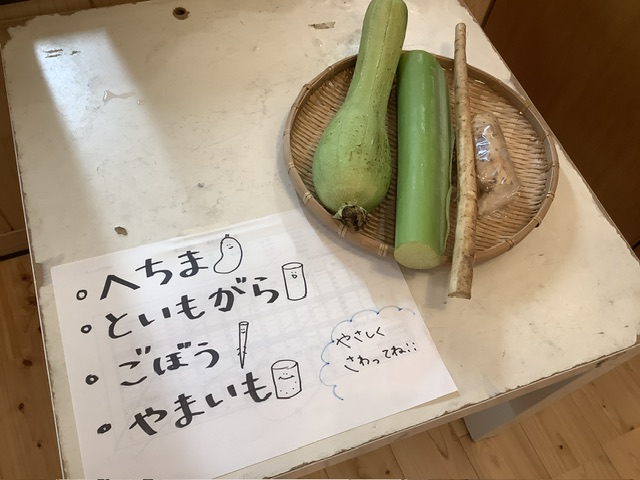 へちま
といもがら
ごぼう
やまいも
やさしく
さわってね!!